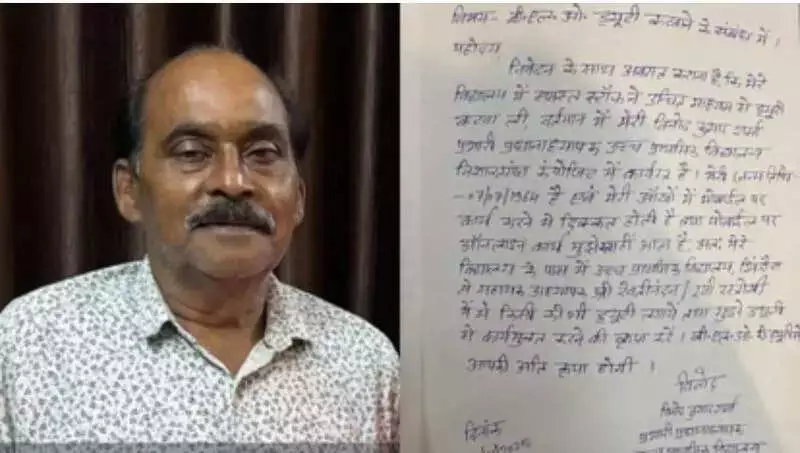 विषय- बी॰एल॰ओ॰ ड्यूटी कटवाने के संबंध में।
महोदय,
निवेदन के साथ अवगत कराना है, कि मेरे
विद्यालय में समस्त स्टॉफ ने उचित माध्यम से ड्यूटी
कटवा ली, वर्तमान में मेरी विनोद कुमार शर्मा
प्रभारी प्रधानाध्यापक उच्च प्राथमिक विद्यालय
में कार्यरत है। मेरी (जन्म तिथि
-07/07/1964 है एवं मेरी आँखों में मोबाईल पर
कार्य करने में दिक्कत होती है तथा मोबाईल पर
ऑनलाइन कार्य मुझे नहीं आता है, अतः मेरे
विद्यालय के पास में उच्च प्राथमिक विद्यालय,
में सहायक अध्यापक श्री
में से किसी की भी ड्यूटी लगाने तथा मुझे ड्यूटी
से कार्यमुक्त करने की कृपा करें। बी॰एल॰ओ॰ की ड्यूटी से
आपकी अति कृपा होगी।
विनोद
विनोद कुमार शर्मा
दिनांक
प्रभारी प्रधानाध्यापक
प्राथमिक विद्यालय